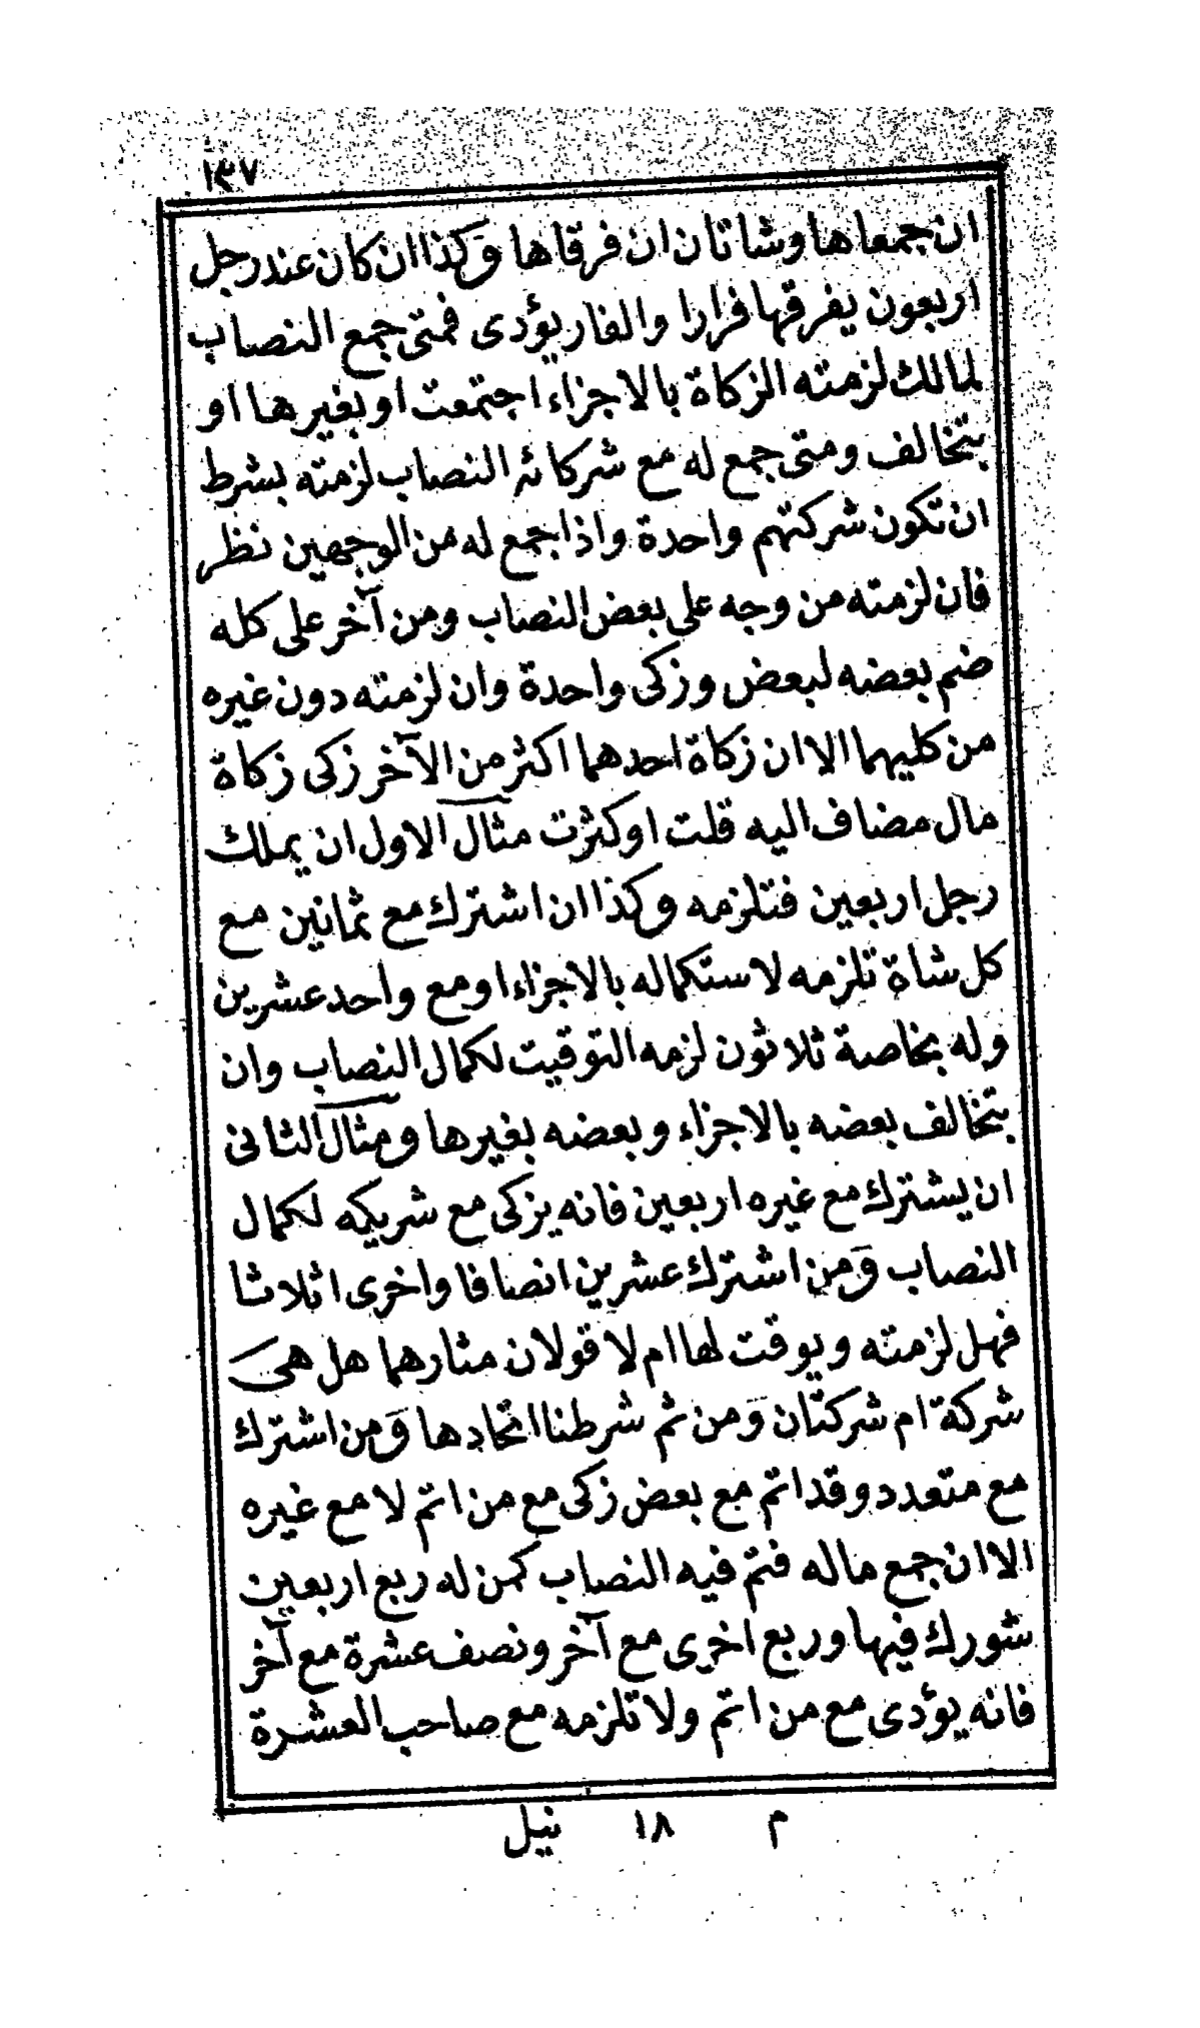 ١٣٧
ان جمعاها وشاتان ان فرقاها وَكذا ان كان عند رجل
اربعون يفرقها فرارا والفار يؤدى فمتى جمع النصاب
لمالك لزمته الزكاة بالاجزاء اجتمعت او بغيرها او
بتخالف ومتى جمع له مع شركائه النصاب لزمته بشرط
ان تكون شركتهم واحدة واذا جمع له من الوجهين نظر
فان لزمته من وجه على بعض النصاب ومن آخر على كله
ضم بعضه لبعض وزكى واحدة وان لزمته دون غيره
من كليهما الا ان زكاة احدهما اكثر من الآخر زكى زكاة
مال مضاف اليه قلت او كثرت مثال الاول ان يملك
رجل اربعين فتلزمه وكذا ان اشترك مع ثمانين مع
كل شاة تلزمه لاستكماله بالاجزاء او مع واحد عشرين
وله بخاصة ثلاثون لزمه التوقيت لكمال النصاب وان
بتخالف بعضه بالاجزاء وبعضه بغيرها ومثال الثانى
ان يشترك مع غيره اربعين فانه يزكى مع شريكه لكمال
النصاب وَمن اشترك عشرين انصافا واخرى اثلاثا
فهل لزمته ويوقت لها ام لا قولان مثارهما هل هى
شركة ام شركتان وَمن ثم شرطنا اتحادها وَمن اشترك
مع متعدد وقد اتم مع بعض زكى مع من اتم لا مع غيره
الا ان جمع ماله فتم فيه النصاب كمن له ربع اربعين
شورك فيها وربع اخرى مع آخر ونصف عشرة مع آخر
فانه يؤدى مع من اتم ولا تلزمه مع صاحب العشرة
م ١٨ نيل